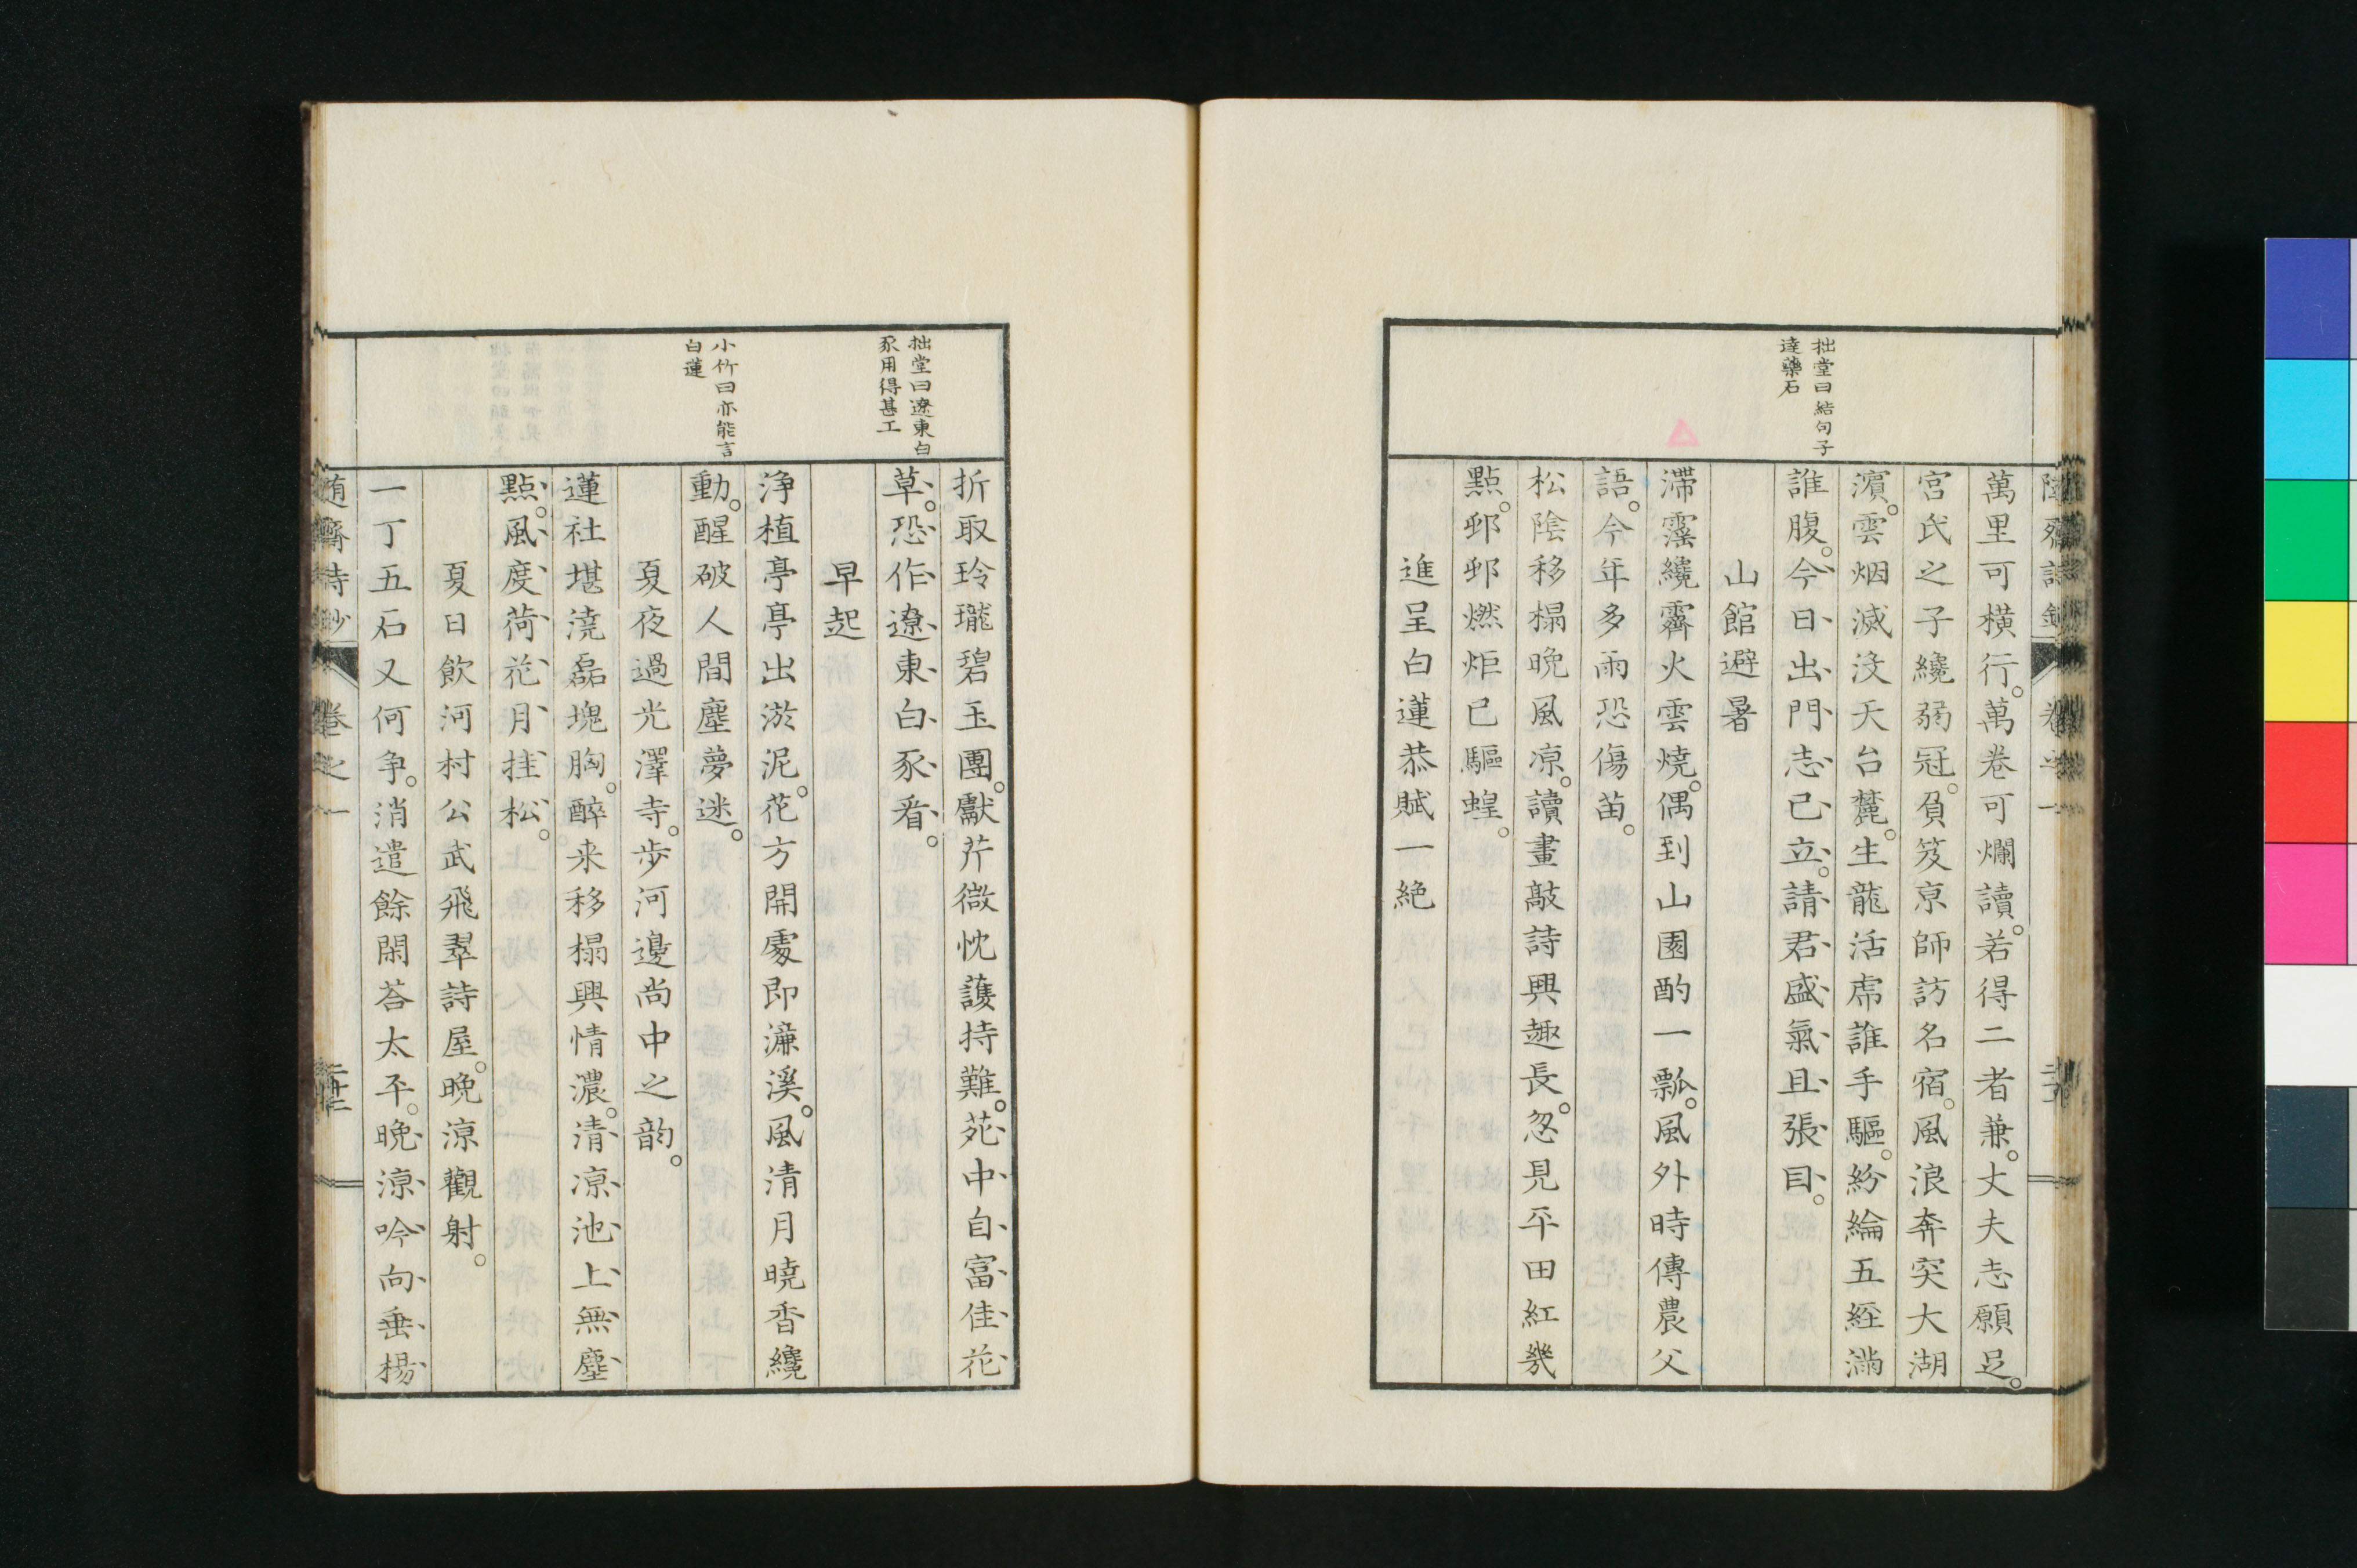 拙堂曰結句子
達藥石
萬里可橫行。萬卷可爛讀。若得二者兼。丈夫志願足。
宮氏之子纔弱冠。負笈京師訪名宿。風浪奔突大湖
濱。雲烟滅沒天台麓。生龍活虎誰手驅。紛綸五經滿
誰腹。今日出門志已立。請君盛氣且張目。
山館避暑
滯霪纔霽火雲燒。偶到山園酌一瓢。風外時傳農父
語。今年多雨恐傷苗。
松陰移榻晚風凉。讀畫敲詩興趣長。忽見平田紅幾
點。邨邨燃炬已驅蝗。
進呈白蓮恭賦一絶
拙堂曰遼東白
豕用得甚工
小竹曰亦能言
白蓮
折取玲瓏碧玉團。獻芹微忱護持難。苑中自富佳花
草。恐作遼東白豕看。
早起
淨植亭亭出淤泥。花方開處即濂溪。風清月曉香纔
動。醒破人間塵夢迷。
夏夜過光澤寺。步河邊尚中之韵。
蓮社堪澆磊塊胸。醉来移榻興情濃。清凉池上無塵
點。風度荷花月挂松。
夏日飲河村公武飛翠詩屋。晚凉觀射。
一丁五石又何争。消遣餘閑荅太平。晚凉吟向垂楊
卷之一